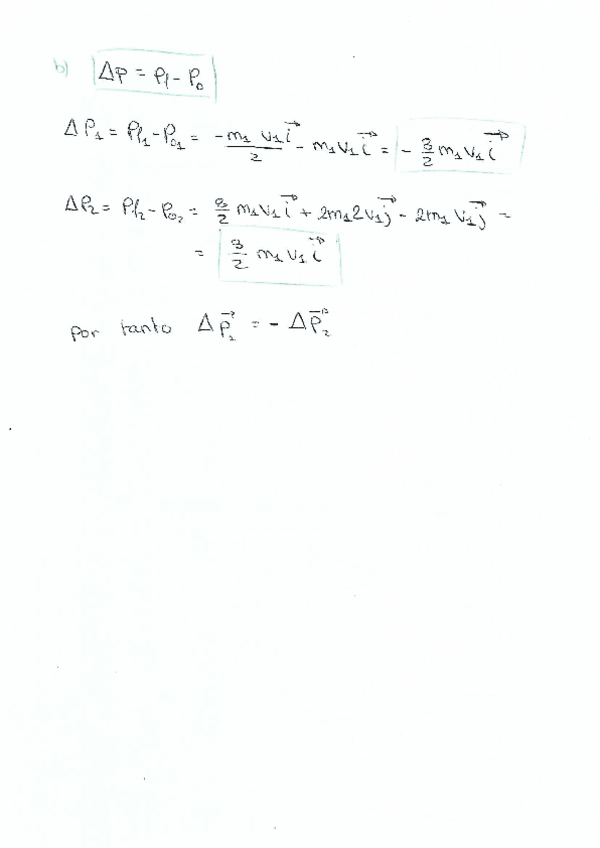 b) Δp = pf - p₀
ΔP₁ = Pf₁ - P₀₁ = -m₁ v₁ i⃗ / 2 - m₁ v₁ i⃗ = - 3/2 m₁ v₁ i⃗
ΔP₂ = Pf₂ - P₀₂ = 3/2 m₁ v₁ i⃗ + 2m₁ 2v₁ j⃗ - 2m₁ v₁ j⃗ =
= 3/2 m₁ v₁ i⃗
por tanto Δp⃗₂ = - Δp⃗₂